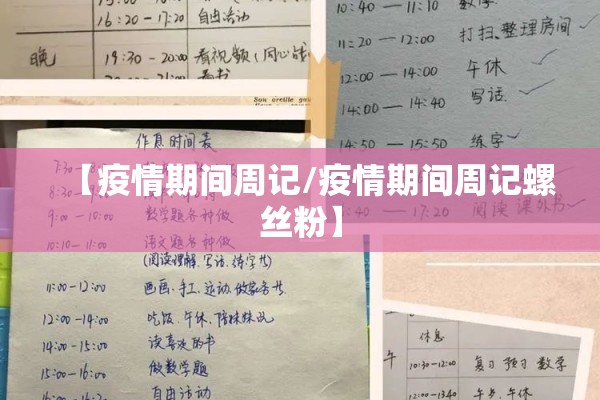 16:20-17:20 自由活动
晚 19:30-20:00 看视频(同心战
20:00-21:00 看书
10:40-11:10 数学
11:20-12:00 打扫、整理房间
12:00-14:00 午休
14:00-14:40 写话
14:50-15:50 练字
17:20 阅读 课外书
作息时间表
【疫情期间周记/疫情期间周记螺
丝粉】
数学题各种做
语文题各种做
(阅读理解、写话、练字等)
11:00-12:00 画画、手工、运动、做家务等
12:00-14:00 吃饭、午休、陪妹妹玩
14:00-15:00 读喜欢的书
15:00-16:00 做数学题
自由活动
休息
午 10:30-12:00 复习 预习 数学
12:00-13:40 午休